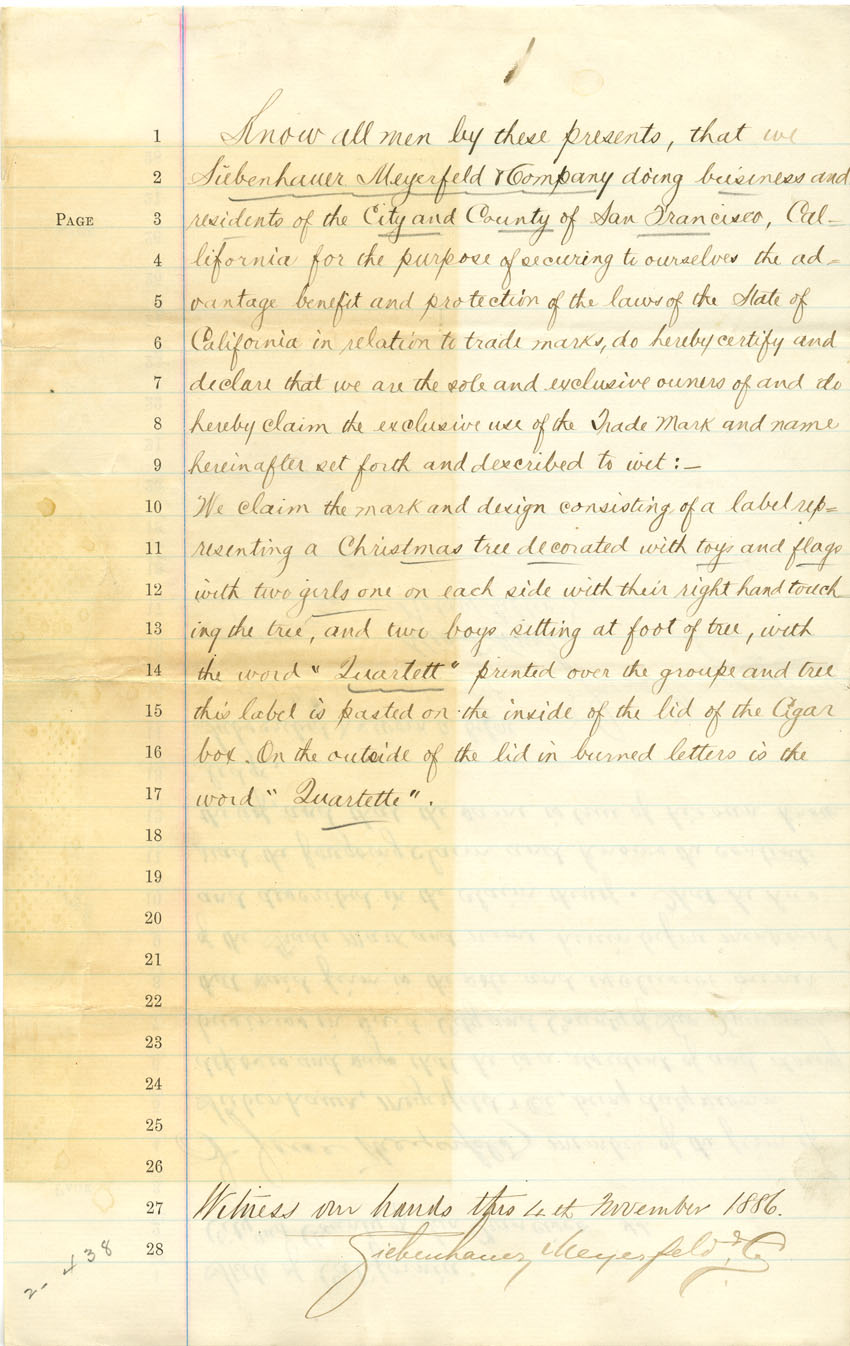 1 Know all men by these presents, that we
2 Siebenhauer Meyerfeld & Company doing business and
PAGE 3 residents of the City and County of San Francisco, Cal=
4 lifornia for the purpose of securing to ourselves the ad=
5 vantage benefit and protection of the laws of the State of
6 California in relation to trade marks, do hereby certify and
7 declare that we are the sole and exclusive owners of and do
8 hereby claim the exclusive use of the Trade Mark and name
9 hereinafter set forth and described to wit:—
10 We claim the mark and design consisting of a label rep=
11 resenting a Christmas tree decorated with toys and flags
12 with two girls one on each side with their right hand touch
13 ing the tree, and two boys sitting at foot of tree, with
14 the word "Quartett" printed over the groupe and tree
15 this label is pasted on the inside of the lid of the Cigar
16 box. On the outside of the lid in burned letters is the
17 word "Quartette".
18
19
20
21
22
23
24
25
26
27 Witness our hands this 4th November 1886.
28 Siebenhauer, Meyerfeld & Co
2-438